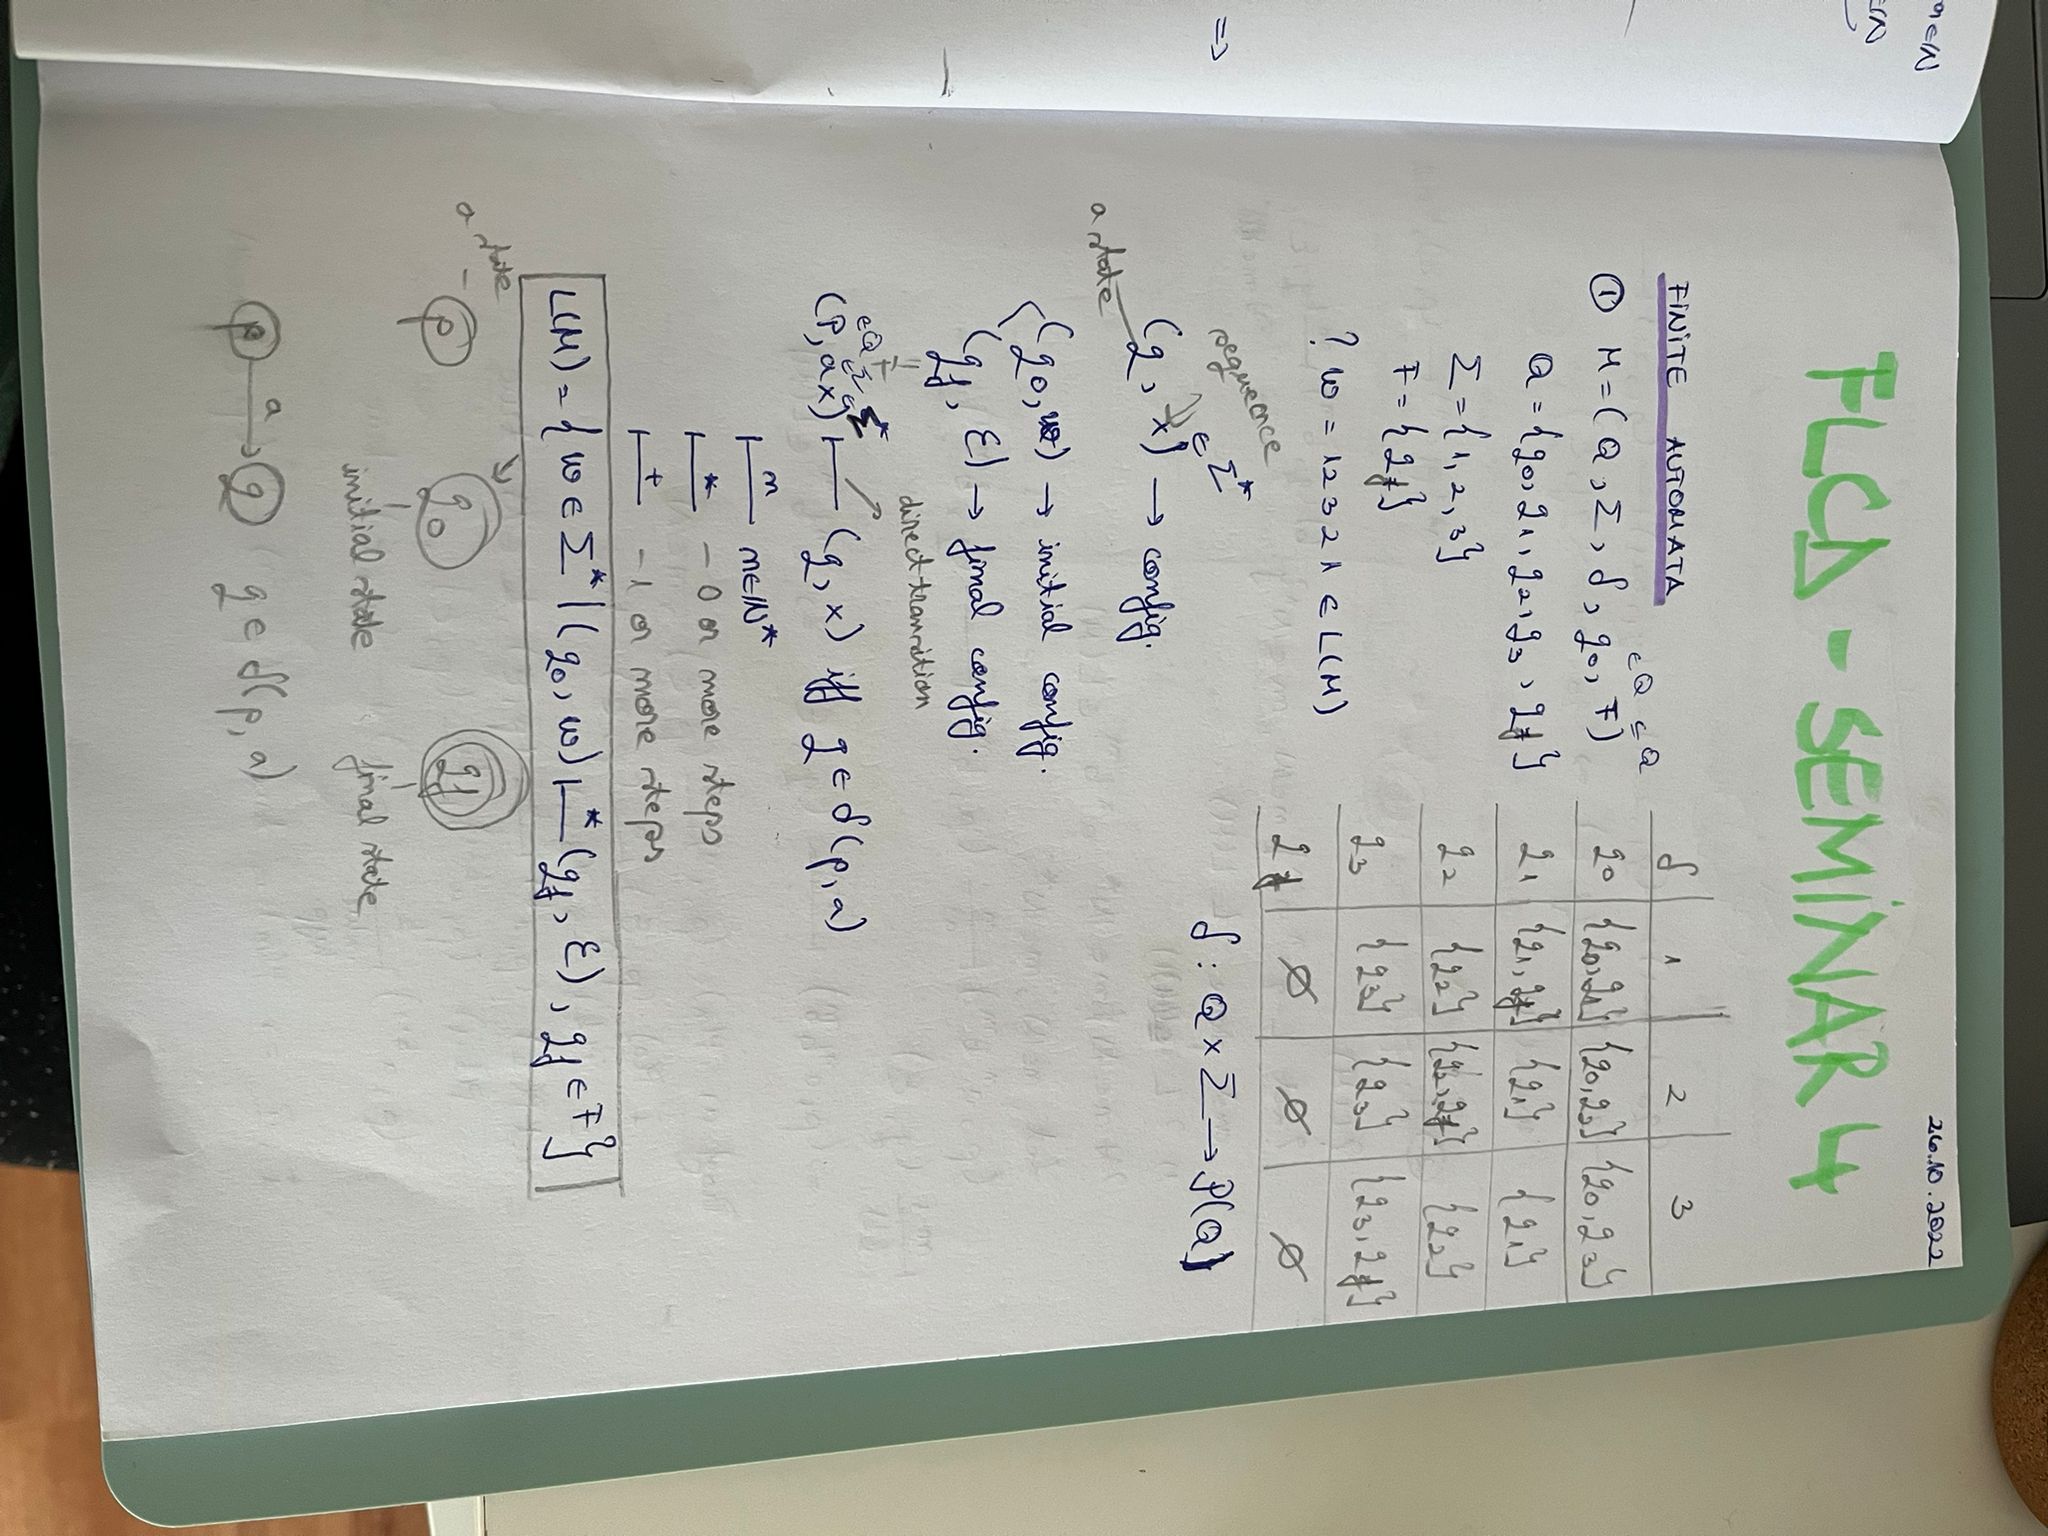 m∈ℕ
∈ℕ
⇒
26.10.2022
FLCD - SEMINAR 4
FINITE AUTOMATA
∈Q ⊆Q
① M = (Q, Σ, δ, q0, F)
Q = {q0, q1, q2, q3, qf}
Σ = {1, 2, 3}
F = {qf}
? w = 12321 ∈ L(M)
δ 1 2 3
q0 {q0,q1} {q0,q2} {q0,q3}
q1 {q1,qf} {q1} {q1}
q2 {q2} {q2,qf} {q2}
q3 {q3} {q3} {q3,qf}
qf ∅ ∅ ∅
δ : Q × Σ → P(Q)
sequence
∈ Σ*
(q, x) → config.
a state
(q0, w) → initial config.
(qf, ε) → final config.
direct transition
∈Q ∈Σ ∈Σ*
(p, ax) ⊢ (q, x) iff q ∈ δ(p, a)
⊢ⁿ n∈ℕ*
⊢* - 0 or more steps
⊢⁺ - 1 or more steps
L(M) = {w ∈ Σ* | (q0, w) ⊢* (qf, ε), qf ∈ F}
a state
p q0 qf
initial state final state
p a→ q q ∈ δ(p, a)